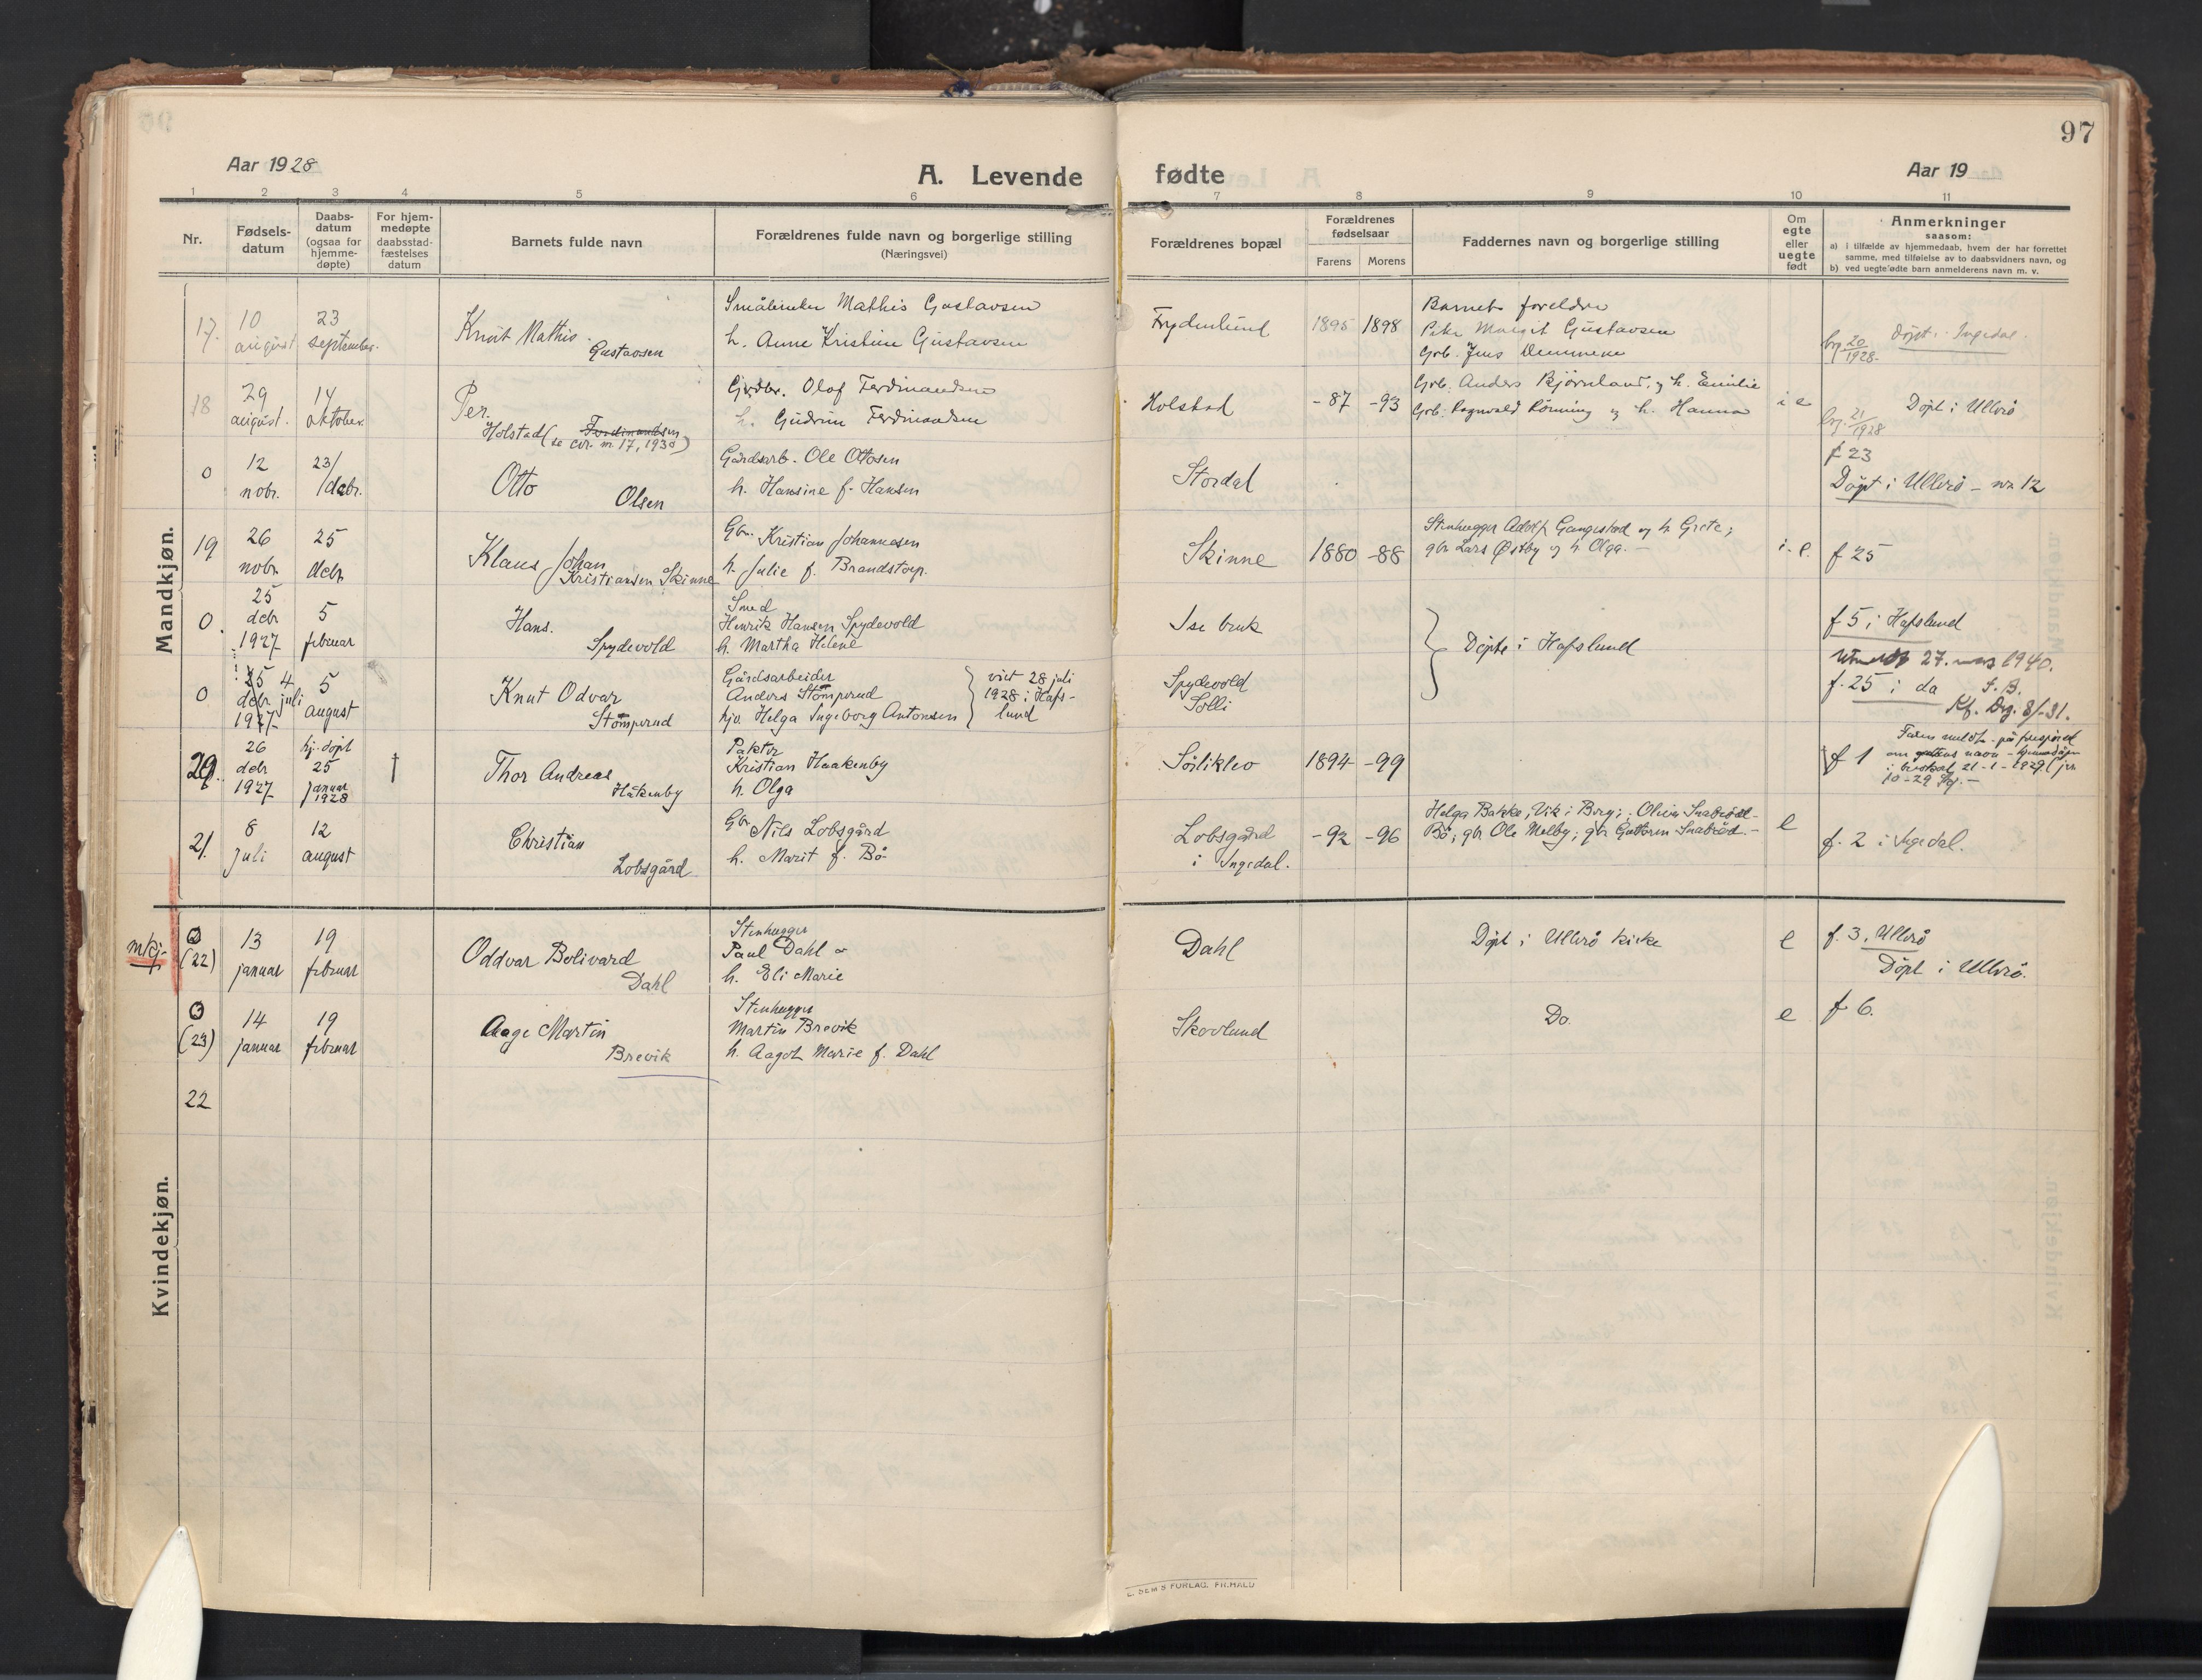 97
Aar 1928
A. Levende fødte
Aar 19
1 2 3 4 5 6 7 8 9 10 11
Nr.
Fødsels-
datum
Daabs-
datum
(ogsaa for
hjemme-
døpte)
For hjem-
medøpte
daabsstad-
fæstelses
datum
Barnets fulde navn
Forældrenes fulde navn og borgerlige stilling
(Næringsvei)
Forældrenes bopæl
Forældrenes
fødselsaar
Farens Morens
Faddernes navn og borgerlige stilling
Om
egte
eller
uegte
født
Anmerkninger
saasom:
a) i tilfælde av hjemmedaab, hvem der har forrettet
samme, med tilføielse av to daabsvidners navn, og
b) ved uegte fødte barn anmelderens navn m. v.
Mandkjøn.
17.
10
august
23
september.
Knut Mathis
Gustavsen
Småbruker Mathis Gustavsen
h. Anne Kristine Gustavsen
Frydenlund
1895 1898
Barnets foreldre
Pike Margit Gustavsen
Grb. Jens
brg. 20
1928.
Døpt i Ingedal.
18
29
august.
14
oktober.
Per.
Holstad (Ferdinandsen
se cir. m. 17, 1930)
Grdbr. Olaf Ferdinandsen
h. Gudrun Ferdinandsen
Holstad
-87 -93
Grb. Anders Bjørnland, og h. Emilie
Grb. Ragnvald Rønning og h. Hanna
i e
brg. 21
1928
Døpt i Ullerø
0
12
nobr.
23/
/debr.
Otto
Olsen
Gårdsarb. Ole Ottosen
h. Hansine f. Hansen
Stordal
f 23
Døpt i Ullerø - nr 12
19
26
nobr.
25
debr
Klaus Johan
Kristiansen Skinne
Gbr. Kristian Johannesen
h. Julie f. Brandstorp.
Skinne
1880 -88
Stenhugger Adolf Gangestad og h. Grete;
gbr Lars Østby og h. Olga. -
i. e.
f 25
0.
25
debr
1927
5
februar
Hans.
Spydevold
Smed
Henrik Hansen Spydevold
h. Martha Helene
Ise bruk
Døpte i Hafslund
f 5 i Hafslund
Utmeldt 27. mars 1940.
S. B.
0
25 4
debr juli
1927
5
august
Knut Odvar
Stomperud
Gårdsarbeider
Anders Stomperud
hju Helga Ingeborg Antonsen
viet 28 juli
1928 i Hafs-
lund
Spydevold
Solli
f. 25 i da
Kf. Drg. 8/-31.
20.
26
debr
1927
hj. døpt
25
januar
1928
†
Thor Andreas
Håkenby
Paktor
Kristian Haakenby
h. Olga
Sørliklev
1894 -99
f 1
Faren meldt på forespørsel
om guttens navn - hjemmedøpt
21-1-1929
10-29
21.
8
juli
12
august
Christian
Lobsgård
Gbr Nils Lobsgård
h. Marit f. Bø
Lobsgård
i Ingedal.
-92 -96
Helga Bakke, Vik i Borg; Oliver
Bø; gbr Ole Melby; gbr Guttorm
e
f. 2 i Ingedal.
Kvindekjøn.
mkj.
0
(22)
13
januar
19
februar
Oddvar Bolivard
Dahl
Stenhugger
Paul Dahl
h. Eli Marie
Dahl
Døpt i Ullerø kirke
e
f. 3. Ullerø
Døpt i Ullerø.
0
(23)
14
januar
19
februar
Aage Martin
Brevik
Stenhugger
Martin Brevik
h. Aagot Marie f. Dahl
Skovlund
Do.
e
f 6.
22
E. SEM'S FORLAG. FR.HALD